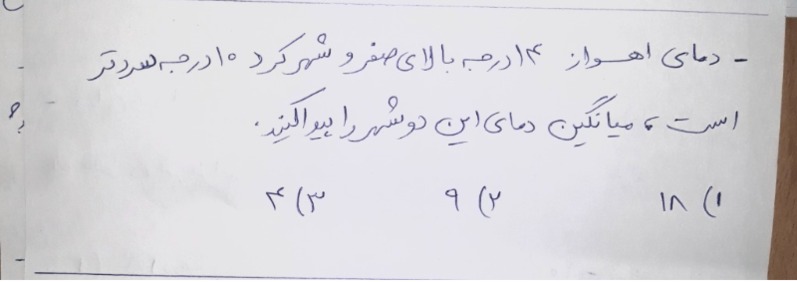 - دمای اهواز ۱۴ درجه بالای صفر و شهرکرد ۱۰ درجه سردتر
است، میانگین دمای این دو شهر را پیدا کنید.
۱) ۱۸ ۲) ۹ ۳) ۴